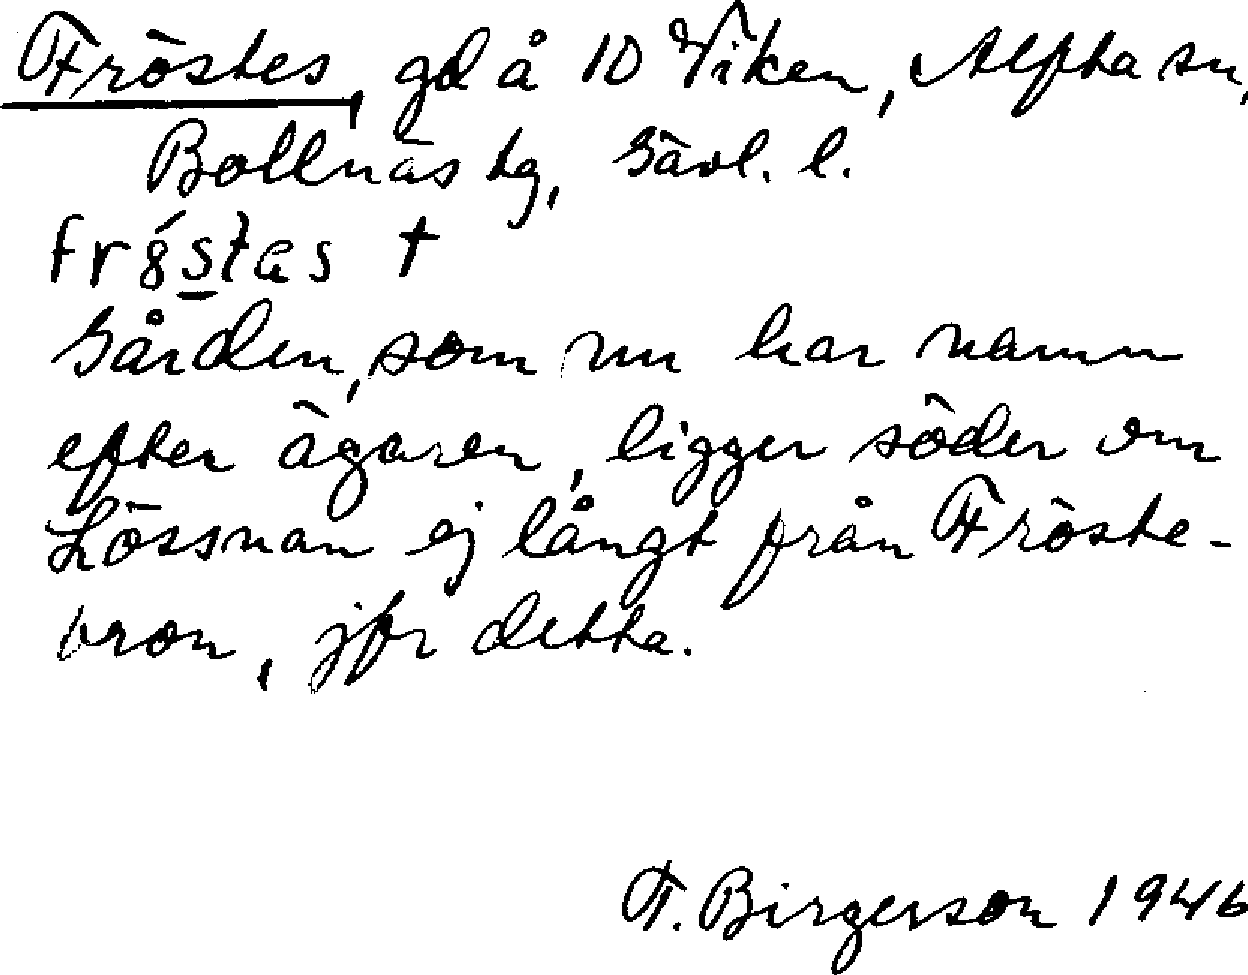 Fröstes, gd å 10 Viken, Alfta sn,
Bollnäs tg, Gävl. l.
frö́stas †
Gården, som nu har namn
efter ägaren, ligger söder om
Lössnan ej långt från Fröste-
bron, jfr detta.
F. Birgerson 1946